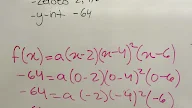 -y-int -64
f(x)=a(x-2)(x-4)²(x-6)
-64=a(0-2)(0-4)²(0-6)
-64=a(-2)(-4)²(-6)